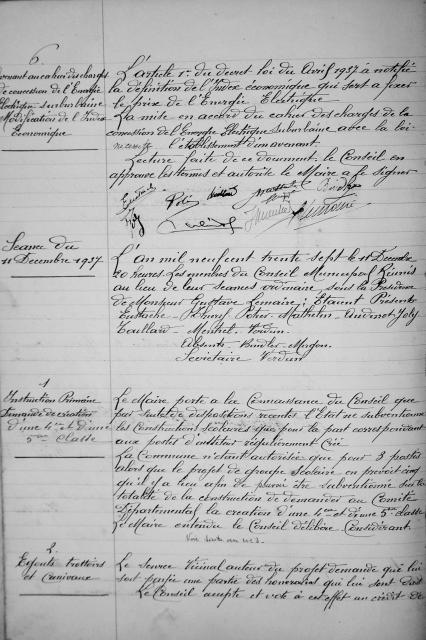 6
Avenant au cahier des charges
de concession de l'Energie
Electrique suburbaine
Modification de l'Index
Economique
L'article 1er du decret loi du Avril 1937 a notifié
la définition de l'Index économique qui sert a fixer
le prix de l'Energie Electrique
La mise en accord du cahier des charges de la
concession de l'Energie Electrique Suburbaine avec la loi
nécessite l'établissement d'un avenant
Lecture faite de ce document, le Conseil en
approuve les termes et autorise le Maire a le signer
Séance du
11 Décembre 1937
L'an mil neuf cent trente sept le 11 Décembre
20 heures Les membres du Conseil Municipal Réunis
au lieu de leur séances ordinaire, sous la Présidence
de Monsieur Gustave Lemaire; Etaient Présents
Eustache - Petin Mathelin - Joly
Verdun
Absents - Binder -
Secrétaire Verdun
1
Instruction Primaire
Demande de création
d'une 4e et d'une
5eme classe
Le Maire porte a la Connaissance du Conseil que
par suite de dispositions récentes l'Etat ne subventionne
les Constructions scolaires que pour la part correspondant
aux postes d'instituteur régulièrement Créé
La Commune n'étant autorisée que pour 3 postes
alors que le projet de groupe Scolaire en prévoit cinq
qu'il y a lieu afin de pouvoir être subventionné sur la
totalité de la construction de demander au Comité
Départemental la creation d'une 4eme et d'une 5eme classe
Le Maire entendu le Conseil délibère - Considérant
2
trottoirs
et caniveaux
Le Service Vicinal auteur du projet demande que lui
soit payée une partie des honoraires qui lui sont dûs
Le Conseil accepte et vote à cet effet un crédit de